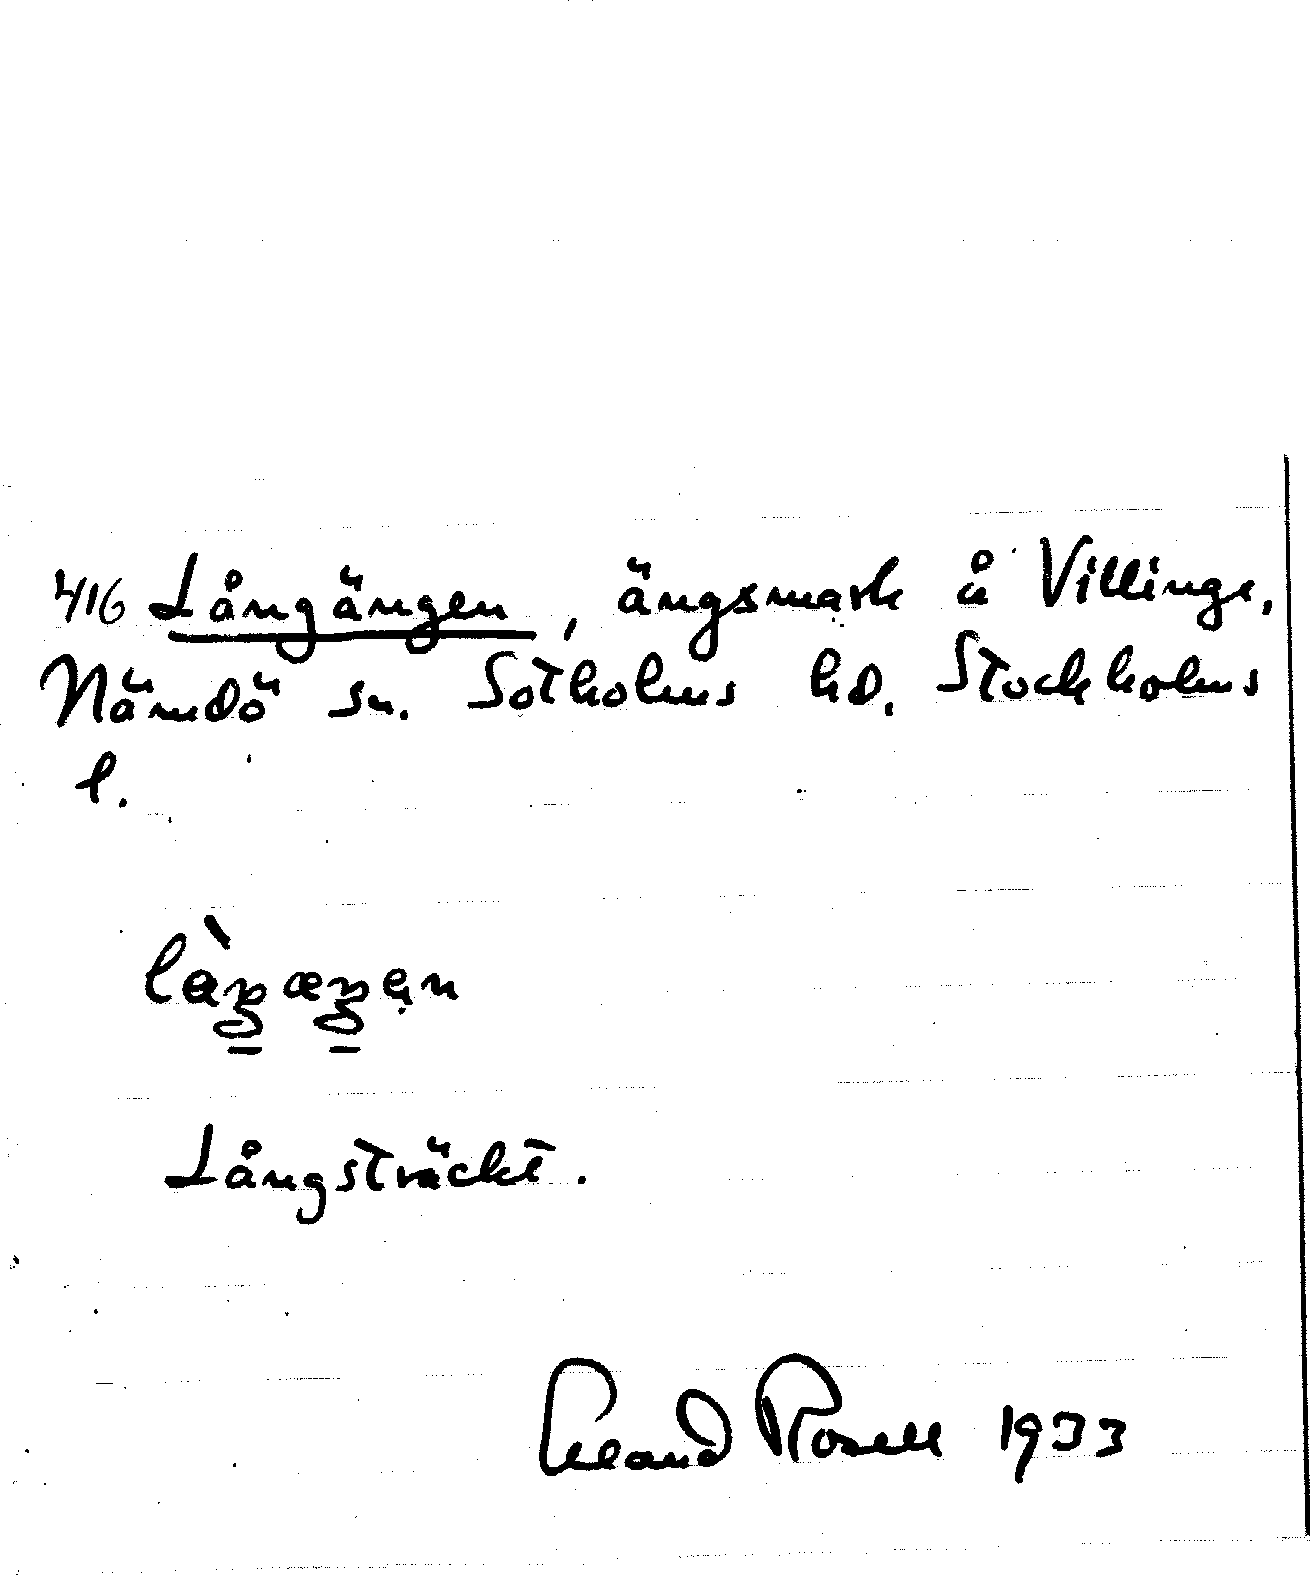 416 Långängen, ängsmark å Villinge,
Nämdö sn. Sotholms hd. Stockholms
l.
Långsträckt.
Rosell 1933